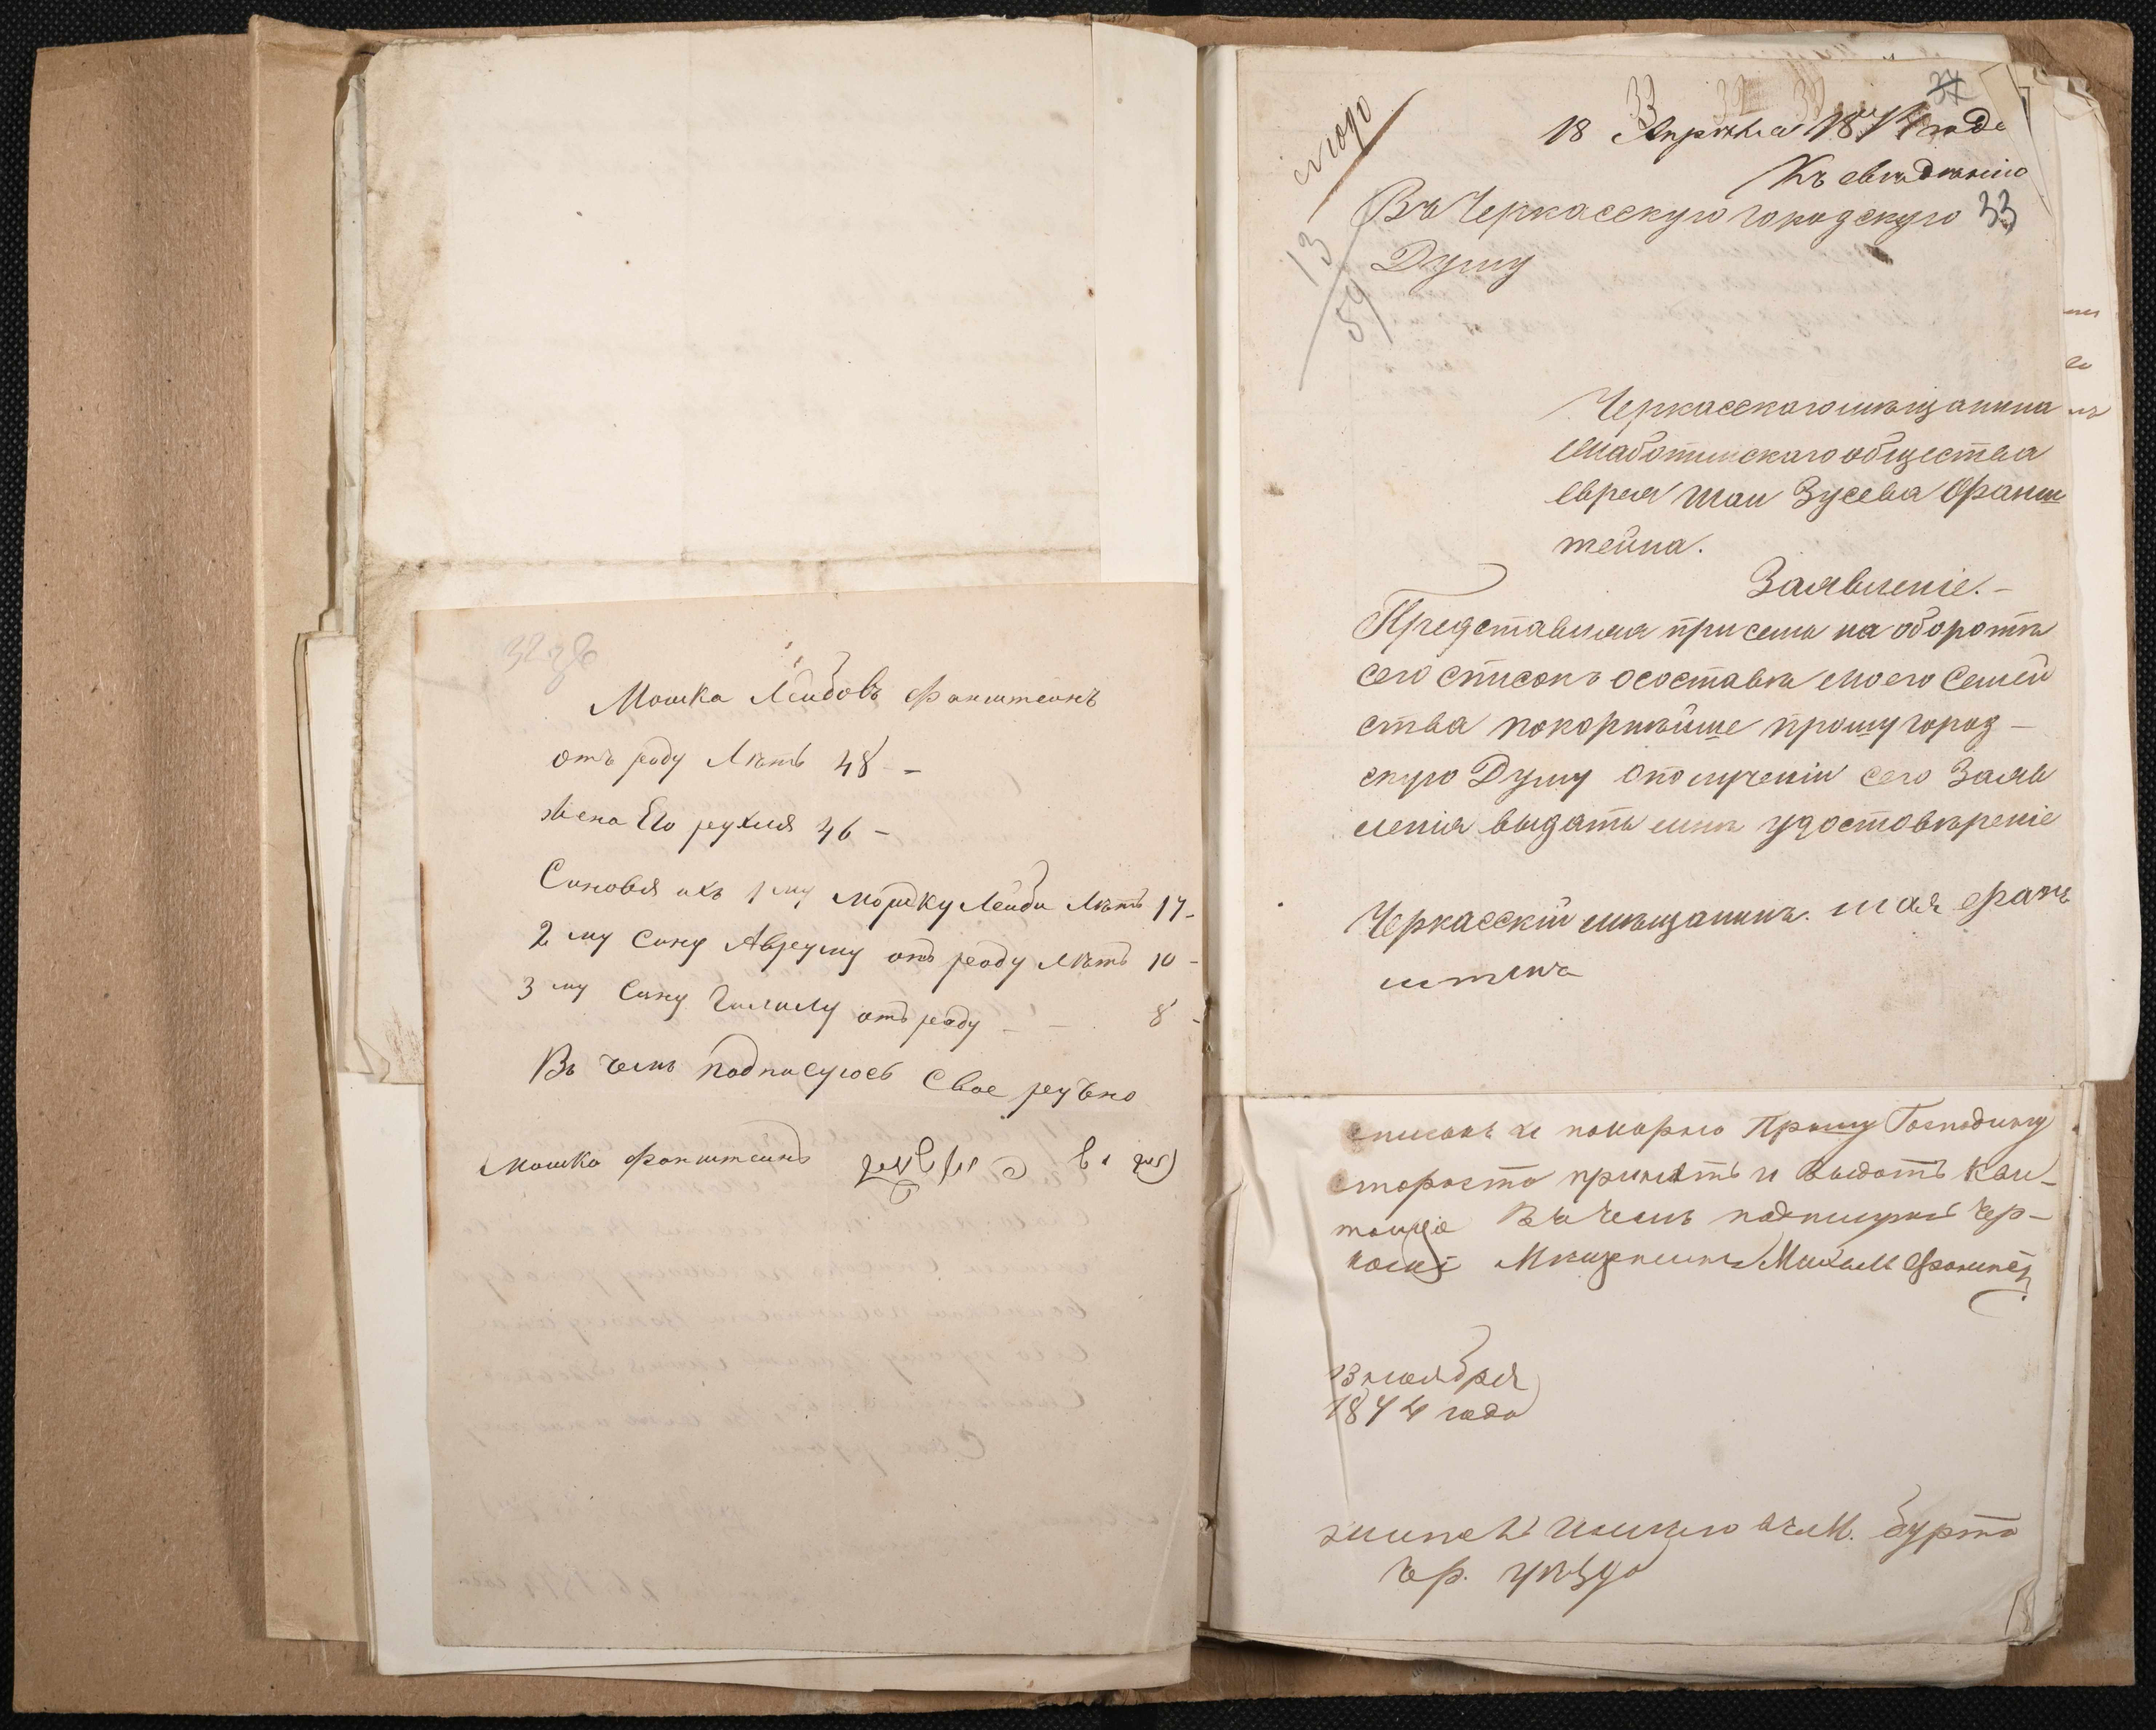 Мошка Лейбовъ Фанштеинъ
отъ роду Лѣтъ 48 –
жена Его рухля 46 –
Синовя ихъ 1 му мошку Лейби Лѣтъ 17 –
2 му Сину Авруму отъ роду Лѣтъ 10 –
3 му Сину отъ роду – – 8 –
Въ чемъ подписуюсь Свое ручно
Мошко Фанштеинъ
33
18 Апрѣля 187 года
Къ свѣдѣнію
Въ Черкасскую городскую 33
Думу
13
59
Черкасскаго мѣщанина
Смаботинскаго общества
еврея Шаи Зусева Франш
тейна.
Заявленіе. –
Представляя при семъ на оборотѣ
сего списокъ о составѣ моего Семей
ства покорнѣйше прошу город –
скую Думу о полученіи сего Заяв
ленія выдать мнѣ удостовѣреніе
Черкасскій мѣщанинъ. шая Фан
штин
списокъ и покорно Прошу Господину
старосто принять и Выдать Кви –
танцо Въ чемъ подписуюсь Чер –
каскі Мѣщенинъ Михаил
13 ноября
1874 года
бурта
чр. уѣздо